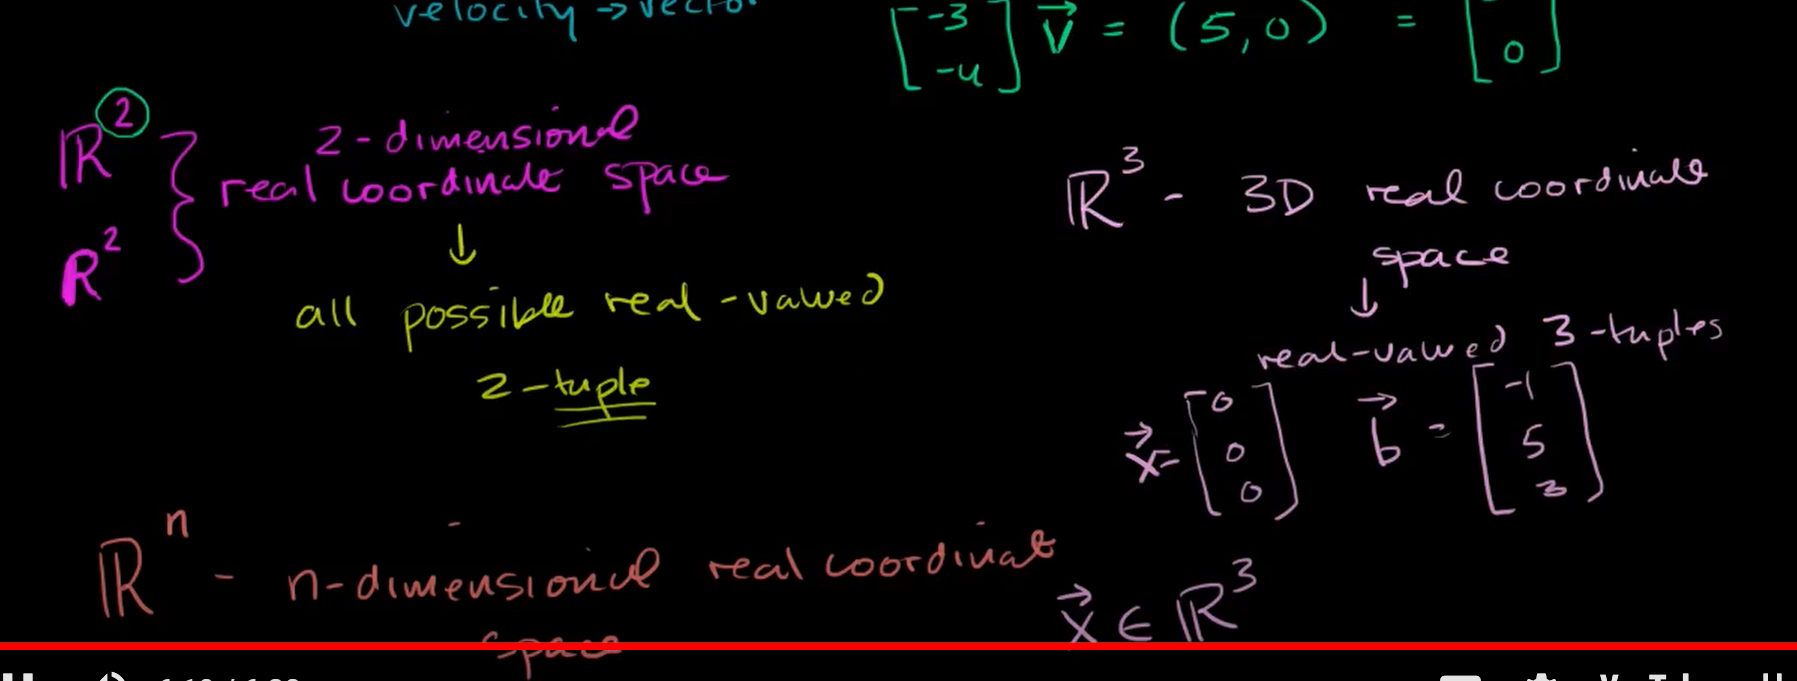 velocity → vector
[-3 -4] V⃗ = (5, 0) = [ 0]
ℝ² 2-dimensional
real coordinate space
R²
↓
all possible real-valued
2-tuple
ℝ³ - 3D real coordinate
space
↓
real-valued 3-tuples
x⃗ = [0 0 0] b⃗ = [-1 5 3]
x⃗ ∈ ℝ³
ℝⁿ - n-dimensional real coordinat
space